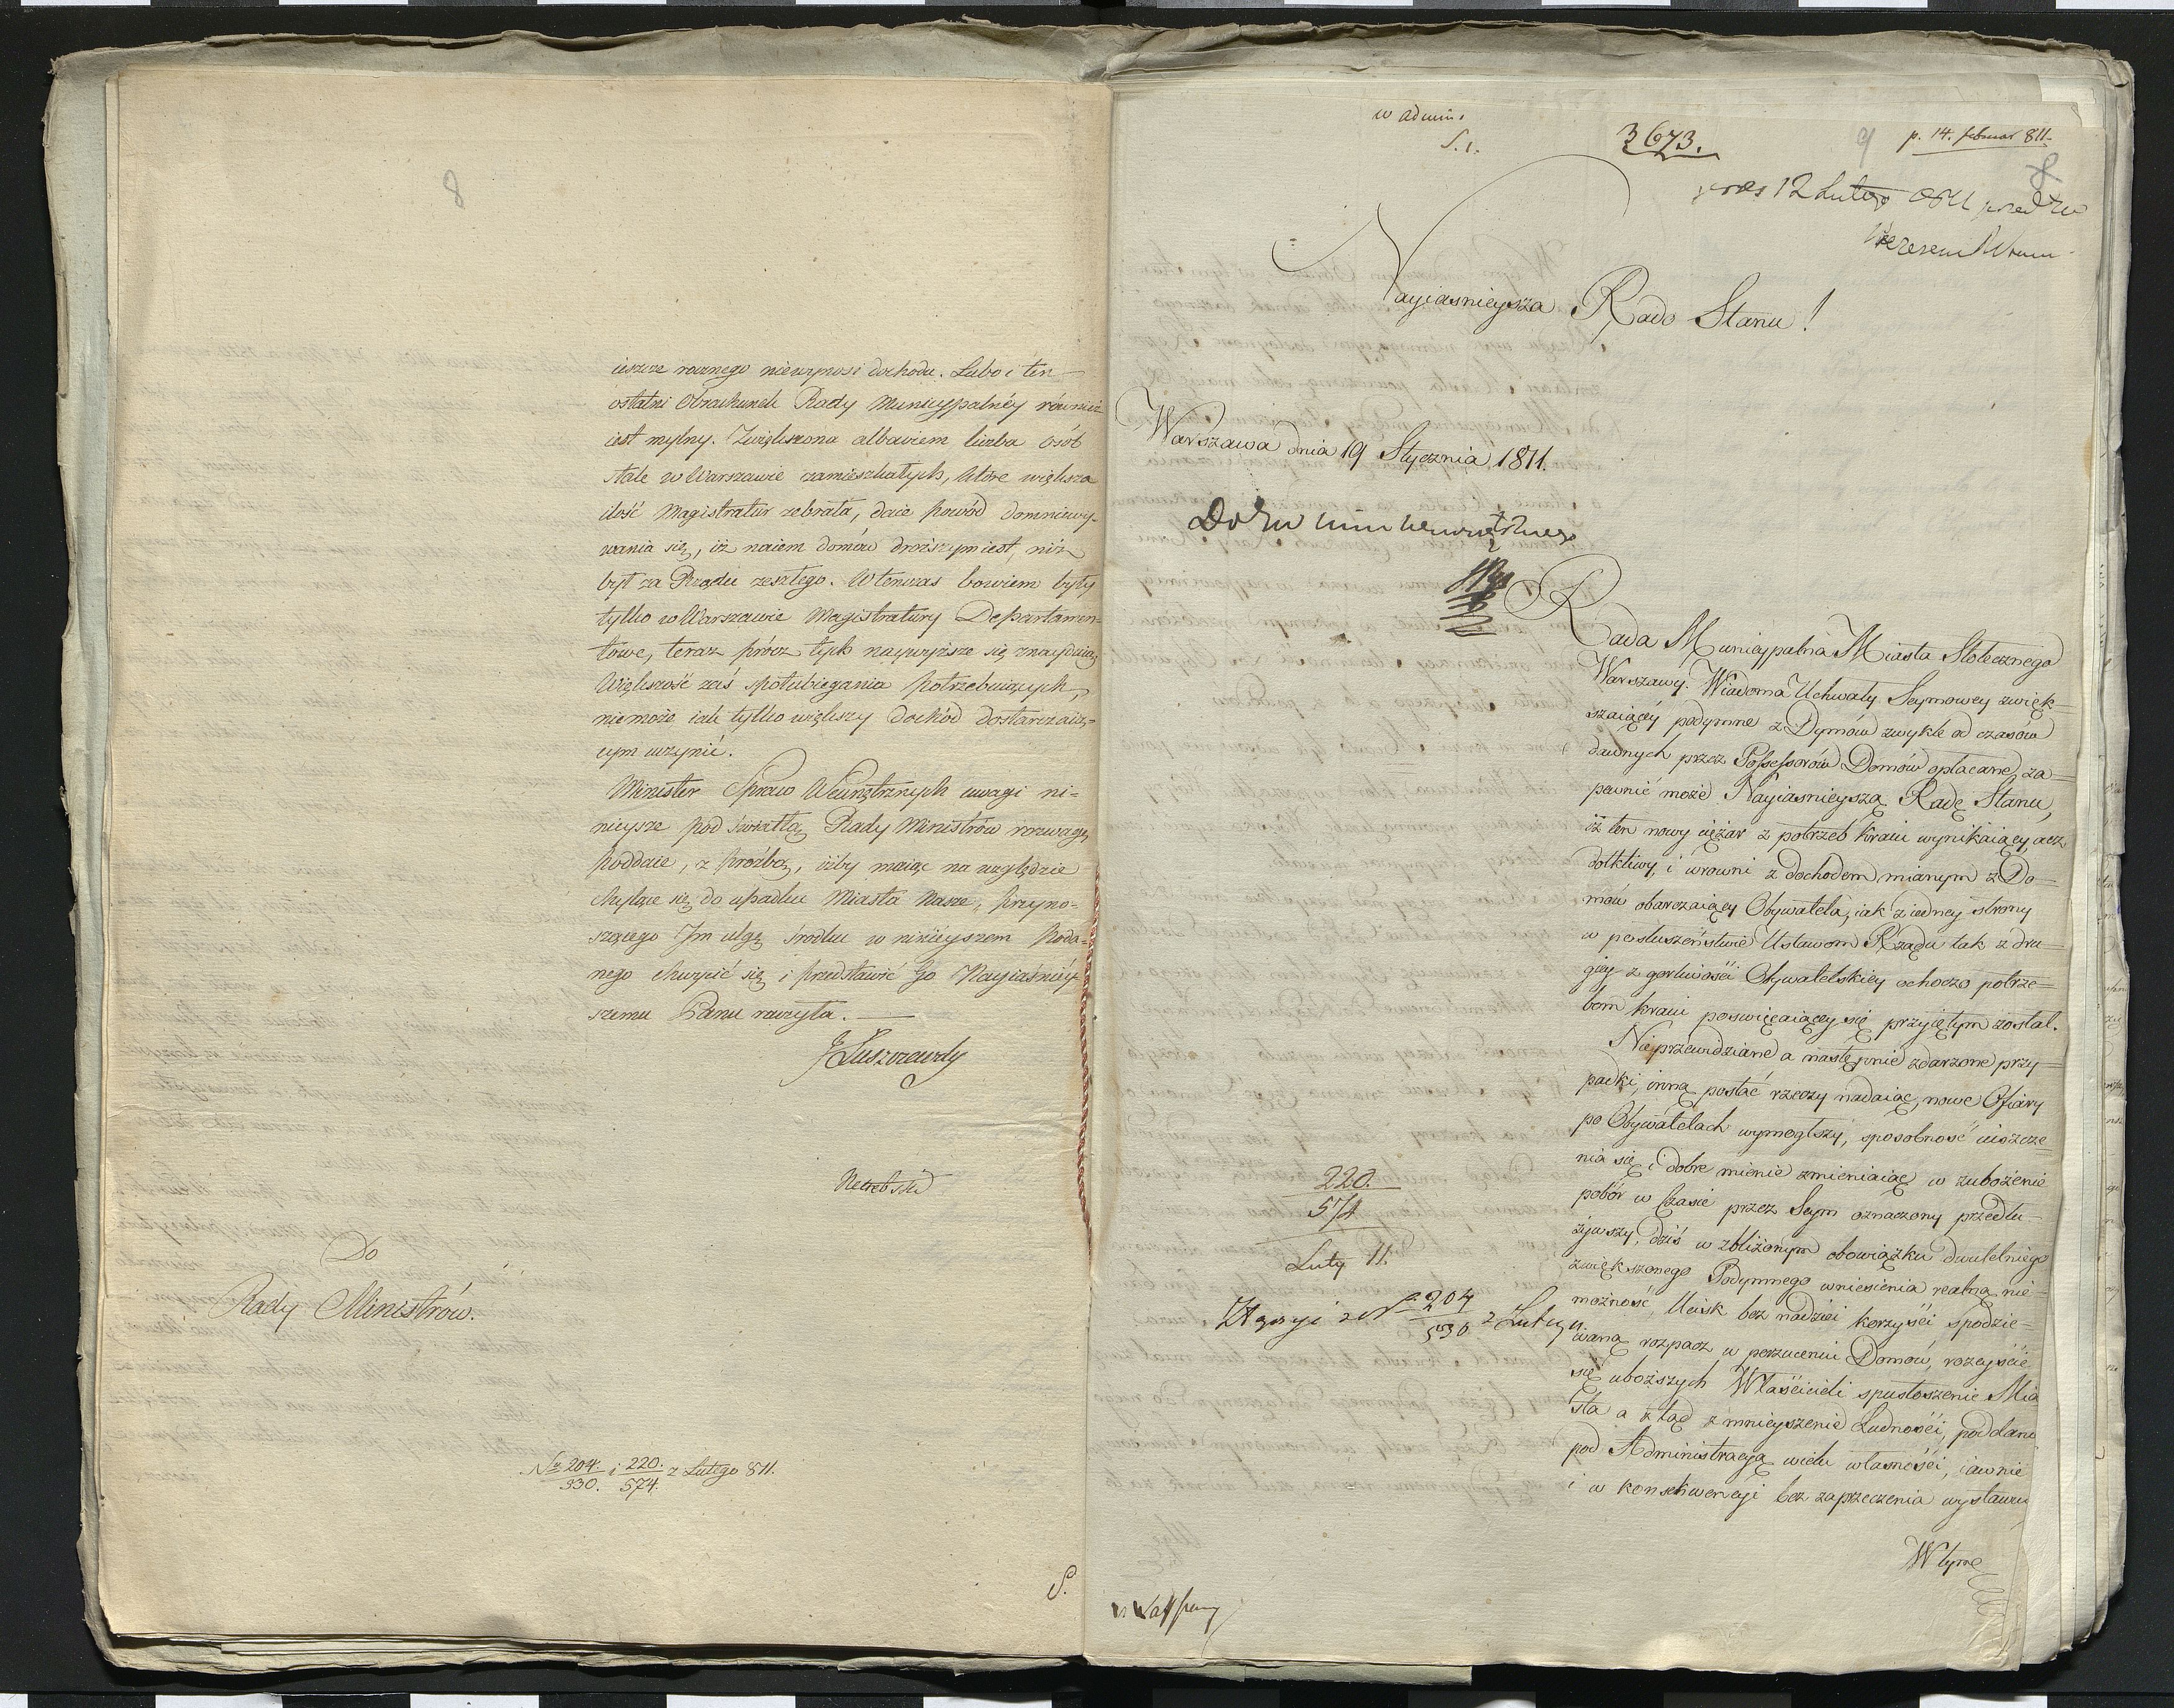 8
ieszcze rocznego niewynosi dochodu. Lubo i ten
ostatni Obrachunek Rady Municypalnéy również
iest mylny. Zwiększona albowiem liczba osób
stale w Warszawie zamieszkałych, które większa
ilość Magistratur zebrała, daie powód domniemy-
wania się, iż naiem domów droższym iest, niż
był za Rządu zeszłego. Wtenczas bowiem były
tylko w Warszawie Magistratury Departamen-
towe, teraz prócz tych naywyższe się znayduią
Większość zaś spółubiegania potrzebuiących,
niemoże iak tylko większy dochód dostarczaią-
cym uczynić.
Minister Spraw Wewnętrznych uwagi ni-
nieysze pod światłą Rady Ministrów rozwagę
poddaie, z proźbą, iżby maiąc na względzie
chylące się do upadku Miasta Nasze, przyno-
szącego Im ulgę środku w ninieyszem poda-
nego chwycić się i przedstawić Go Nayiaśniéy-
szemu Panu raczyła.
J Łuszczewsky
Do
Rady Ministrów.
Nr 204. / 330. i 220. / 574. z Lutego 811.
S.
w admin.
S. 1.
3673.
9
p. 14. februar 811.
8
pres 12 Lutego 1811
Nayiasnieysza Rado Stanu!
Warszawa dnia 19 Stycznia 1811.
Rada Municypalna Miasta Stołecznego
Warszawy. Wiadoma Uchwały Seymowey zwięk-
szaiącéy podymne z Dymów zwykle od czasów
dawnych przez Possessorów Domów opłacane, za-
pewnić może Nayiasnieyszą Radę Stanu,
iż ten nowy ciężar z potrzeb kraiu wynikaiący, acz
dotkliwy, i wrowni z dochodem mianym z Do-
mów obarczaiący Obywatela, iak z iedney strony
w posłuszeństwie Ustawom Rządu tak z dru-
giey z gorliwości Obywatelskiey ochoczo potrze-
bom kraiu poswięcaiącey się przyiętym został.
Nieprzewidziane a następnie zdarzone przy-
padki, inną postać rzeczy nadaiąc, nowe Ofiary
po Obywatelach wymogłszy, sposobność uiszcze
nia się i dobre mienie zmieniaiąc w zubożenie
pobór w Czasie przez Seym oznaczony przedłu-
żywszy, dziś w zbliżonym obowiązku dwuletniego
zwiększonego Podymnego wniesienia realną nie-
możność, Ucisk bez nadziei korzyści spodzie-
waną rozpacz w porzuceniu Domów, rozeyście
się uboższych Właścicieli spustoszenie Mia
sta a z tąd zmnieyszenie Ludności, poddanie
pod Administracyą wielu własności, iawnie
i w konsekwencyi bez zaprzeczenia wystawia
220.
574
Luty 11.
204
530 z Lutego
W tyme